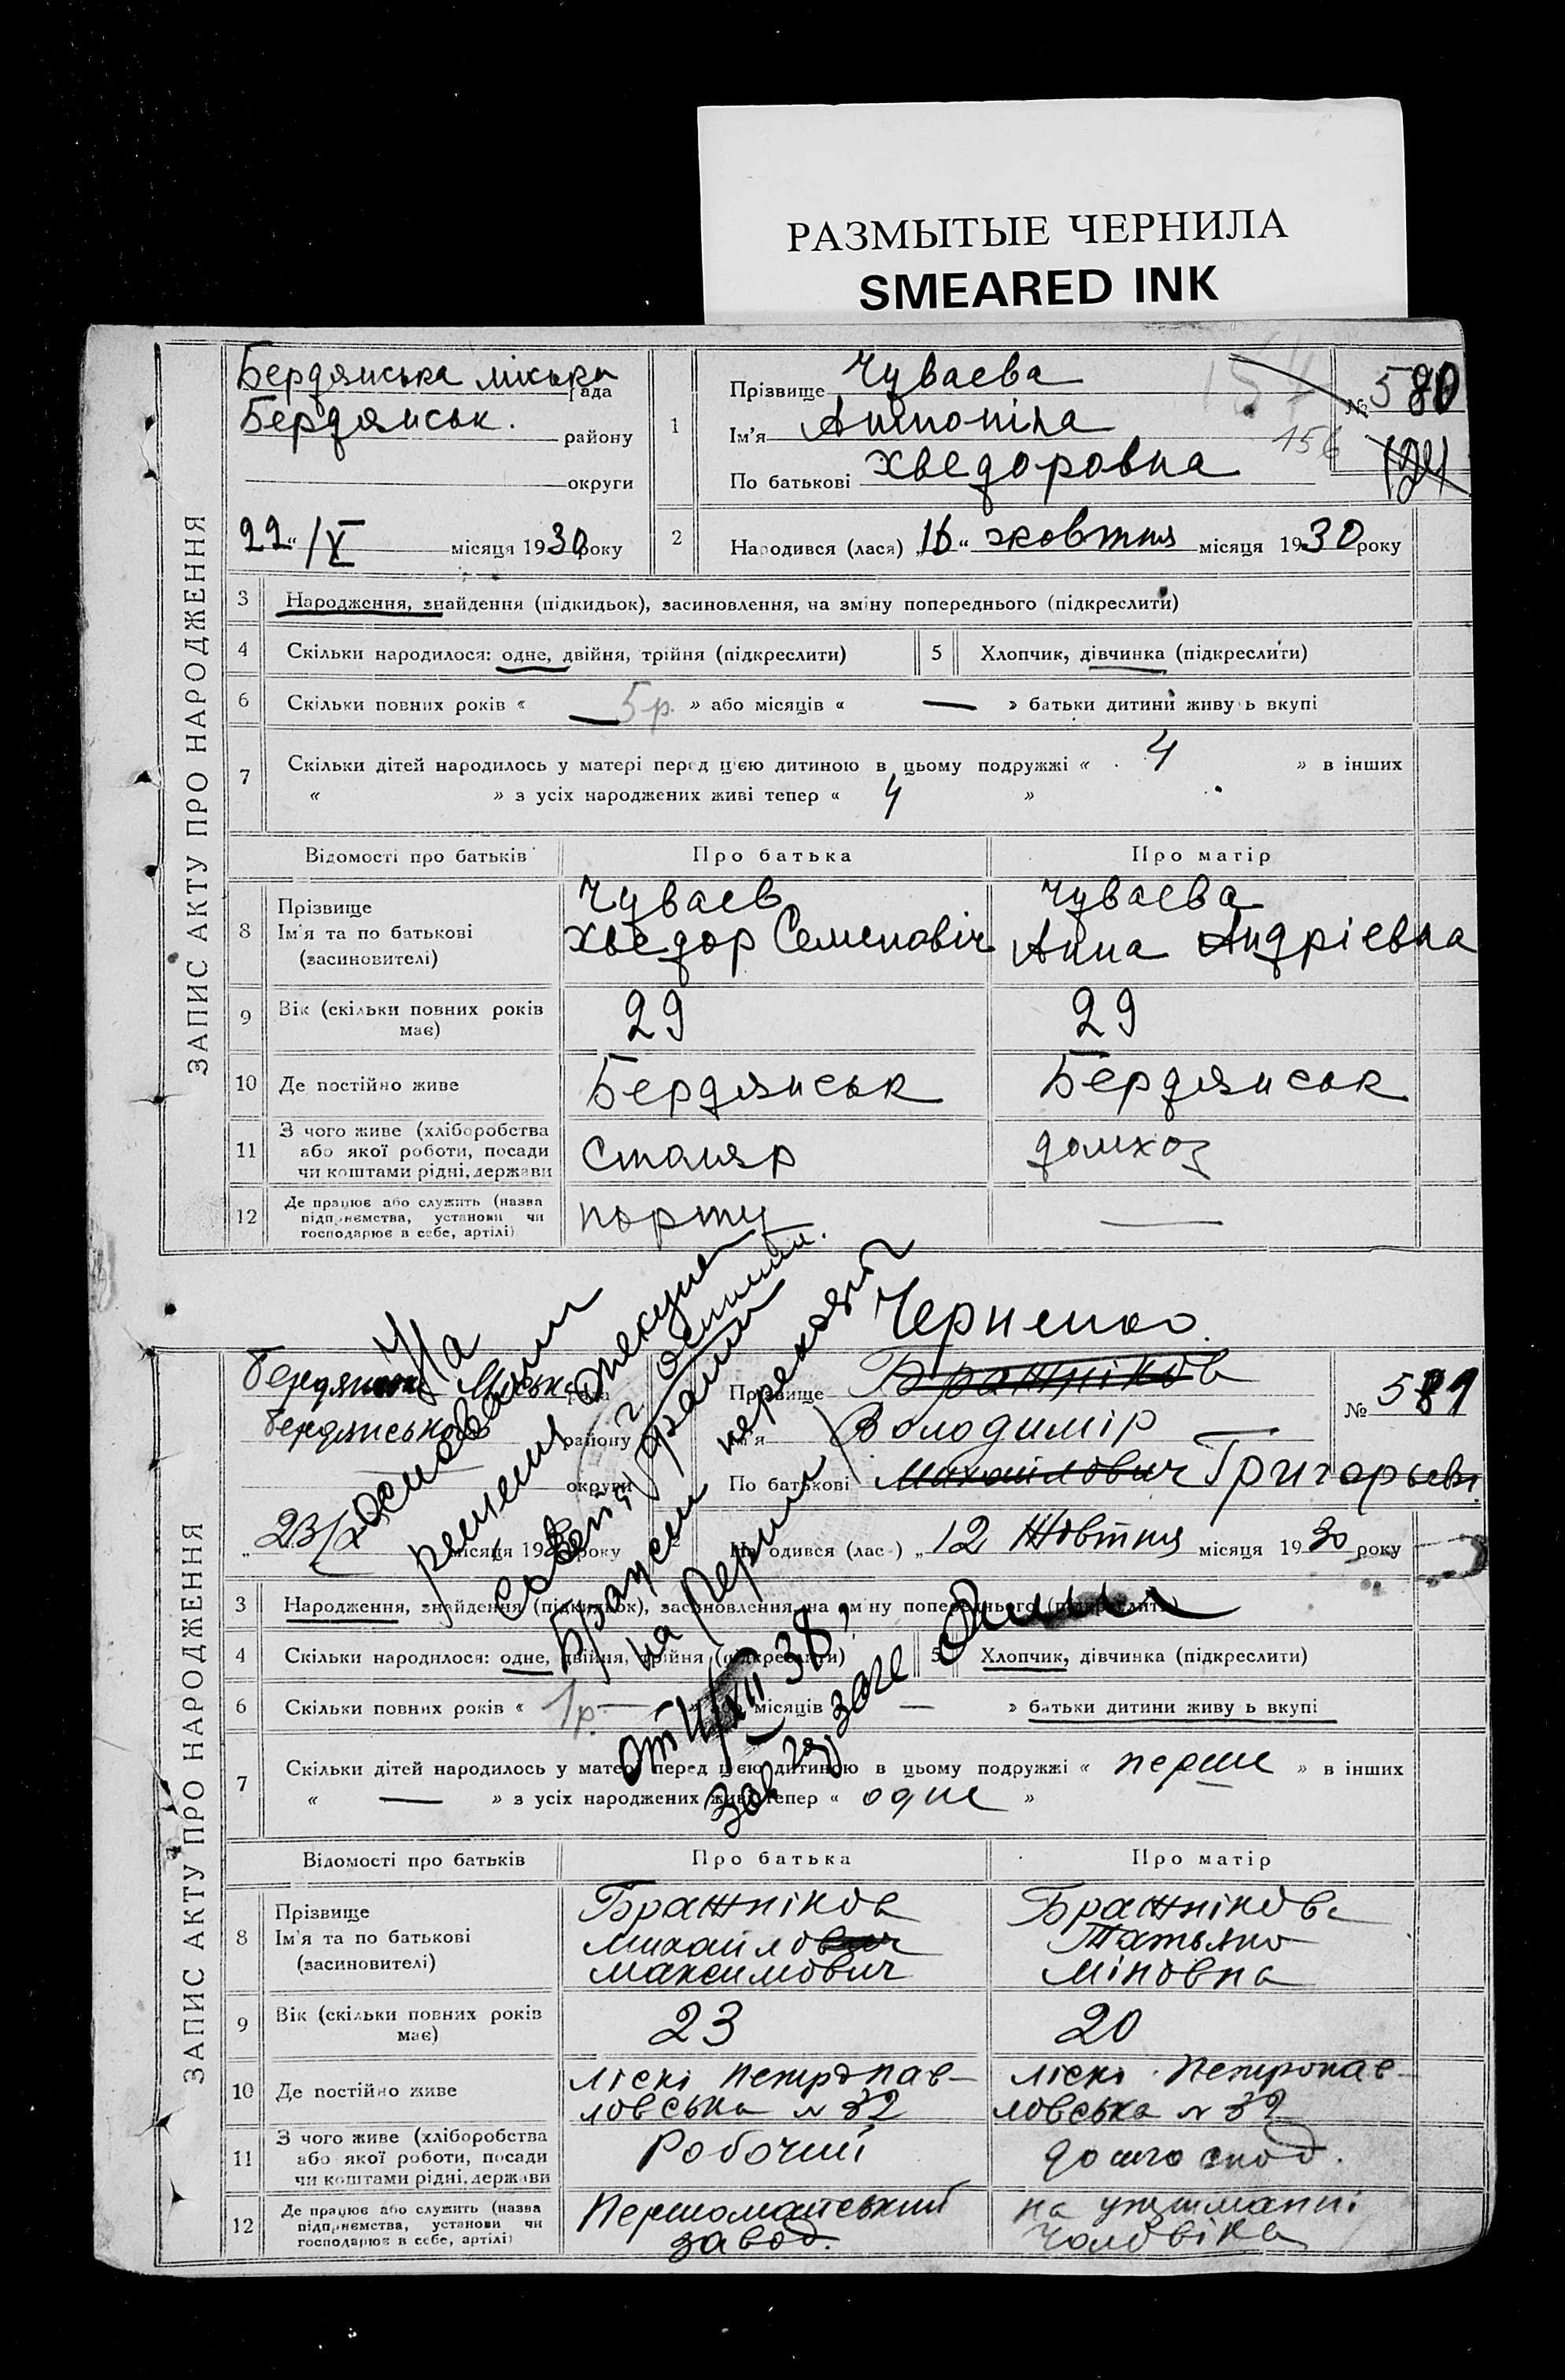 РАЗМЫТЫЕ ЧЕРНИЛА
SMEARED INK
ЗАПИС АКТУ ПРО НАРОДЖЕННЯ
Бердянська міська рада
Бердянськ. району
округи
22 " /X місяця 1930 року
1 Прізвище Чуваева
Ім'я Антоніна
По батькові Хведоровна
№ 580
156
124
2 Народився (лася) „16 " жовтня місяця 1930 року
3 Народження, знайдення (підкидьок), засиновлення, на зміну попереднього (підкреслити)
4 Скільки народилося: одне, двійня, трійня (підкреслити)
5 Хлопчик, дівчинка (підкреслити)
6 Скільки повних років « 5 р. » або місяців « — » батьки дитини живуь вкупі
7 Скільки дітей народилось у матері перед цією дитиною в цьому подружжі « 4 » в інших
« » з усіх народжених живі тепер « 4 »
Відомості про батьків Про батька Про матір
8 Прізвище Чуваев Чуваева
Ім'я та по батькові Хведор Семеновіч Анна Андріевна
(засиновителі)
9 Вік (скільки повних років має) 29 29
10 Де постійно живе Бердянськ Бердянськ
11 З чого живе (хліборобства
або якої роботи, посади Столяр домхоз
чи коштами рідні, держави
12 Де працює або служить (назва
підприємства, установи чи порту —
господарює в себе, артілі)
Черненко.
ЗАПИС АКТУ ПРО НАРОДЖЕННЯ
Бердянська Міська рада
Бердянського району
округи
„ 23/X місяця 1930 року
Прізвище Бражніков
Ім'я Володимір
По батькові Михайлович Григорьев.
№ 581
Народився (лас ) „ 12 Жовтня місяця 1930 року
На основании
решения опекун
Совет
фамил
Бражников переходит
на
от 4/XII 38
Зав. гор загс
3 Народження, знайдення (підкидьок), засиновлення, на зміну попереднього (підкреслити)
4 Скільки народилося: одне, двійня, трійня (підкреслити)
5 Хлопчик, дівчинка (підкреслити)
6 Скільки повних років « 1 р. — » або місяців — » батьки дитини живуь вкупі
7 Скільки дітей народилось у матері перед цією дитиною в цьому подружжі « перше » в інших
« — » з усіх народжених живі тепер « одне »
Відомості про батьків Про батька Про матір
8 Прізвище Бражніков Бражнікова
Ім'я та по батькові Михайлович Татьяна
(засиновителі) Максимович Міновна
9 Вік (скільки повних років має) 23 20
10 Де постійно живе Ліскі Петропав- Ліскі Петропав-
ловська № 32 ловська № 32
11 З чого живе (хліборобства
або якої роботи, посади Робочий домогоспод.
чи коштами рідні, держави
12 Де працює або служить (назва Першомайський на утриманні
підприємства, установи чи завод. чоловіка
господарює в себе, артілі)